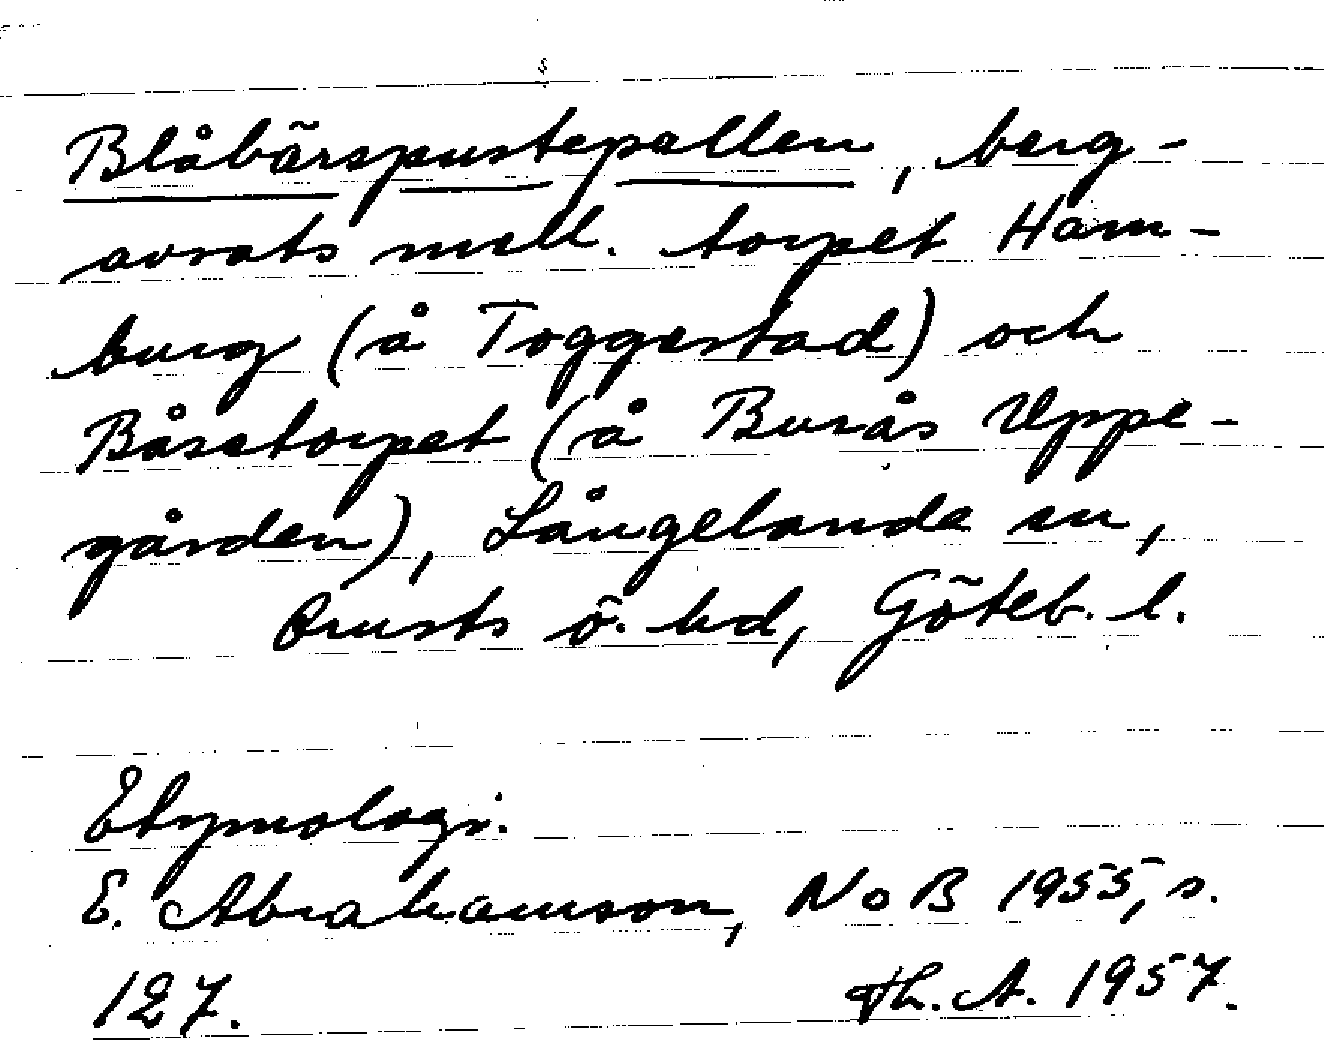 Blåbärspustepallen, berg-
avsats mell. torpet Ham-
burg (å Toggestad) och
Båsetorpet (å Burås Uppe-
gården), Långelanda sn,
Orusts ö. hd, Göteb. l.
Etymologi.
E. Abrahamson, NoB 1955, s.
127.
Th. A. 1957.